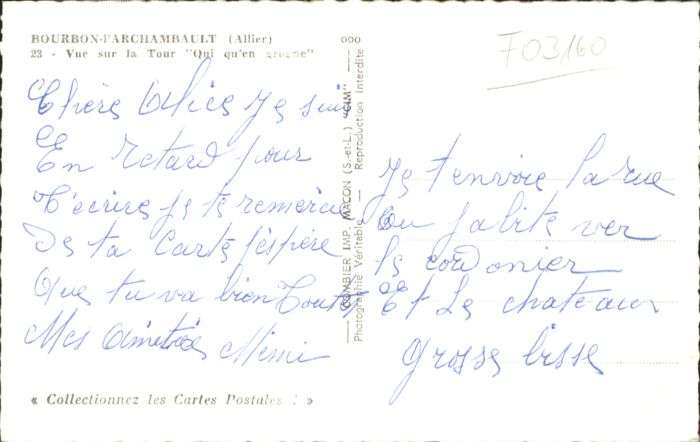 BOURBON-l'ARCHAMBAULT (Allier)
23 - Vue sur la Tour "Qui qu'en grogne"
000
F03160
Chère Alice Je suis
En retard pour
t'écrire je te remercie
De ta Carte j'espère
Que tu va bien Toutes
Mes Amitiées Mimi
« Collectionnez les Cartes Postales ! »
COMBIER IMP. MACON (S.-et-L.) "CIM"
Photographie Véritable - Reproduction Interdite
Je t'envoie la rue
Ou j'abite ver
le cordonier
Et Le chateau
grosse bisse